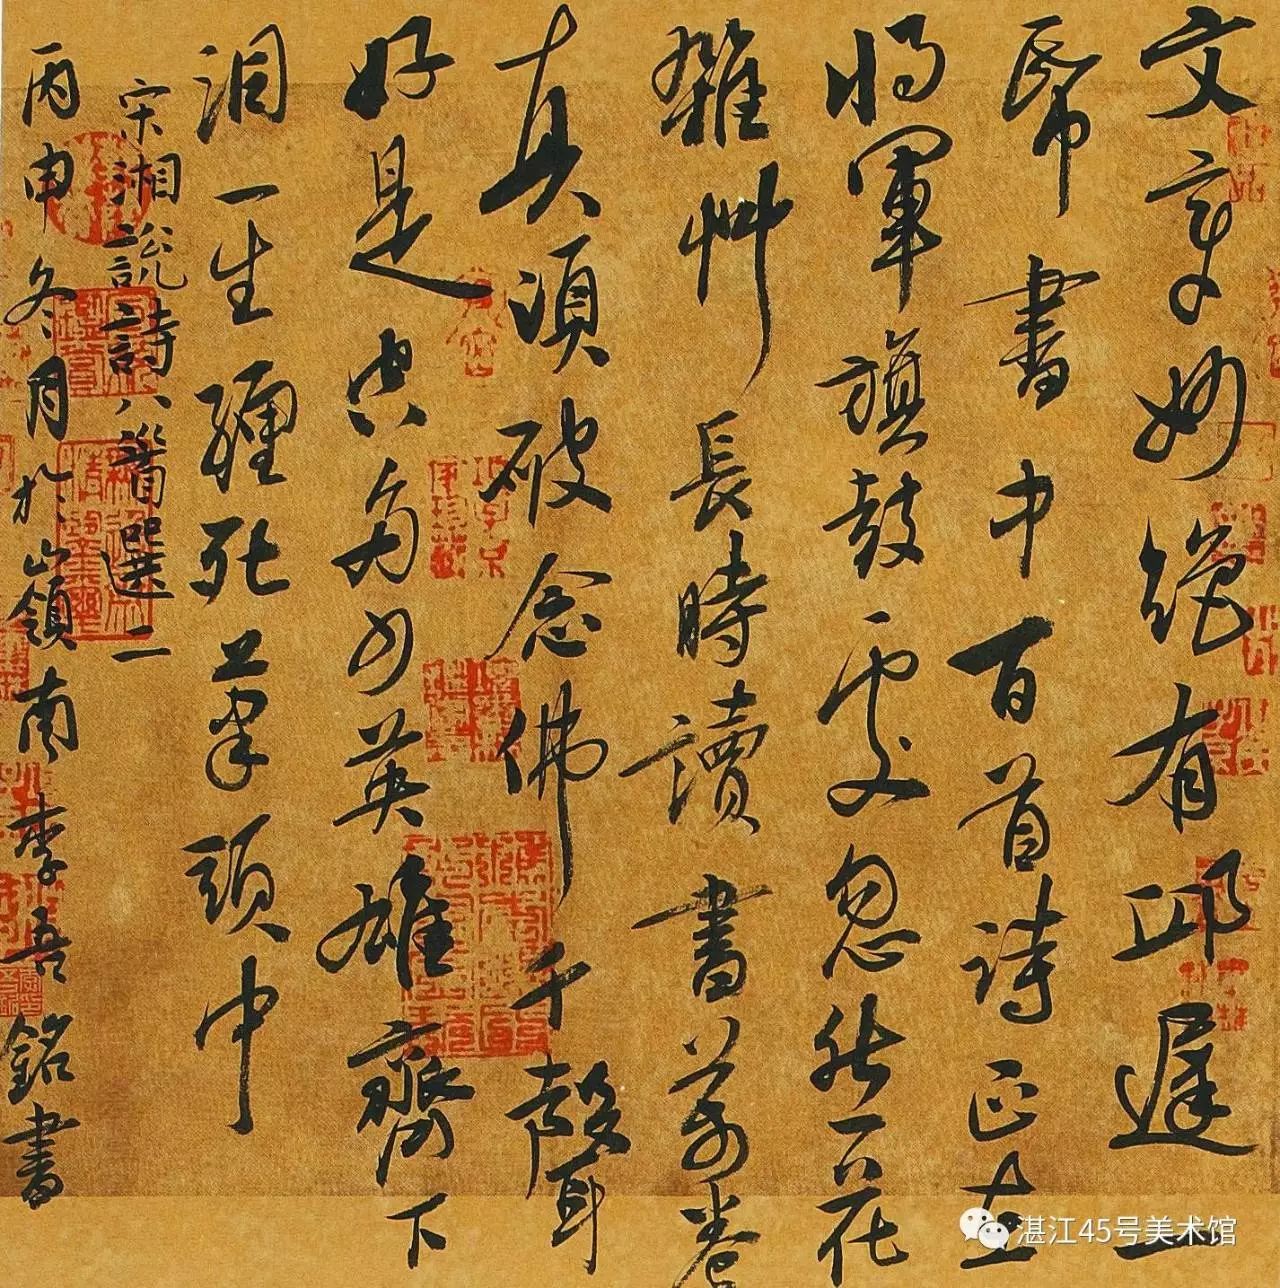 文章妙絕有邱遲一
帋書中百首詩正在
將軍旗鼓處忽然花
雜艸長時讀書萬卷
真須破念佛千聲
好是空多少英雄齊下
泪一生纏死筆頭中
宋湘説詩八首選二
丙申冬月於嶺南李吾銘書
湛江45号美术馆